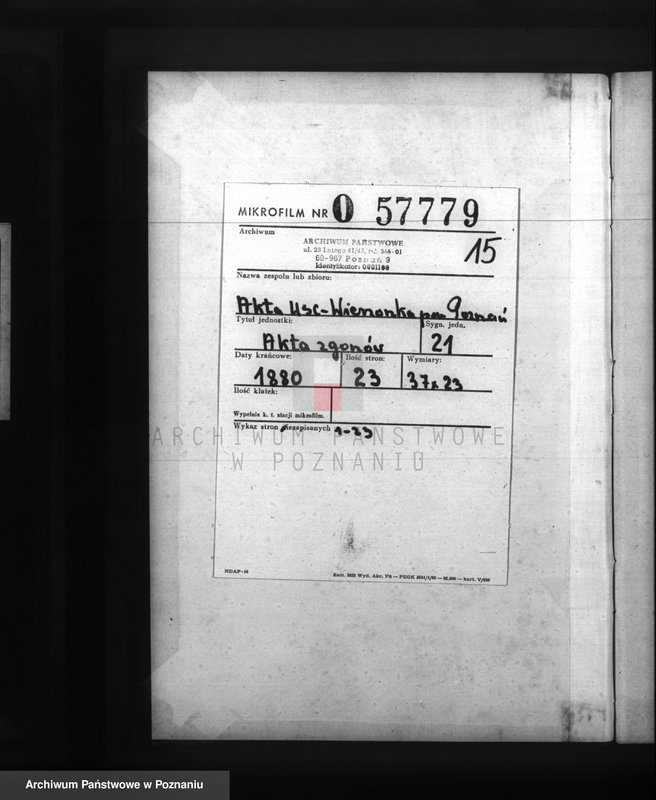 MIKROFILM NR O 57779
Archiwum
ARCHIWUM PAŃSTWOWE
ul. 23 Lutego 41/43, tel. 346-01
60-967 Poznań 9
Identyfikator: 0001108
15
Nazwa zespołu lub zbioru:
Akta USC-Wieronka pow Poznań
Tytuł jednostki:
Akta zgonów
Sygn. jedn.
21
Daty krańcowe:
1880
Ilość stron:
23
Wymiary:
37x23
Ilość klatek:
Wypełnia k. t. stacji mikrofilm.
Wykaz stron niezapisanych 1-23
ARCHIWUM PAŃSTWOWE
W POZNANIU
NDAP-10
Archiwum Państwowe w Poznaniu